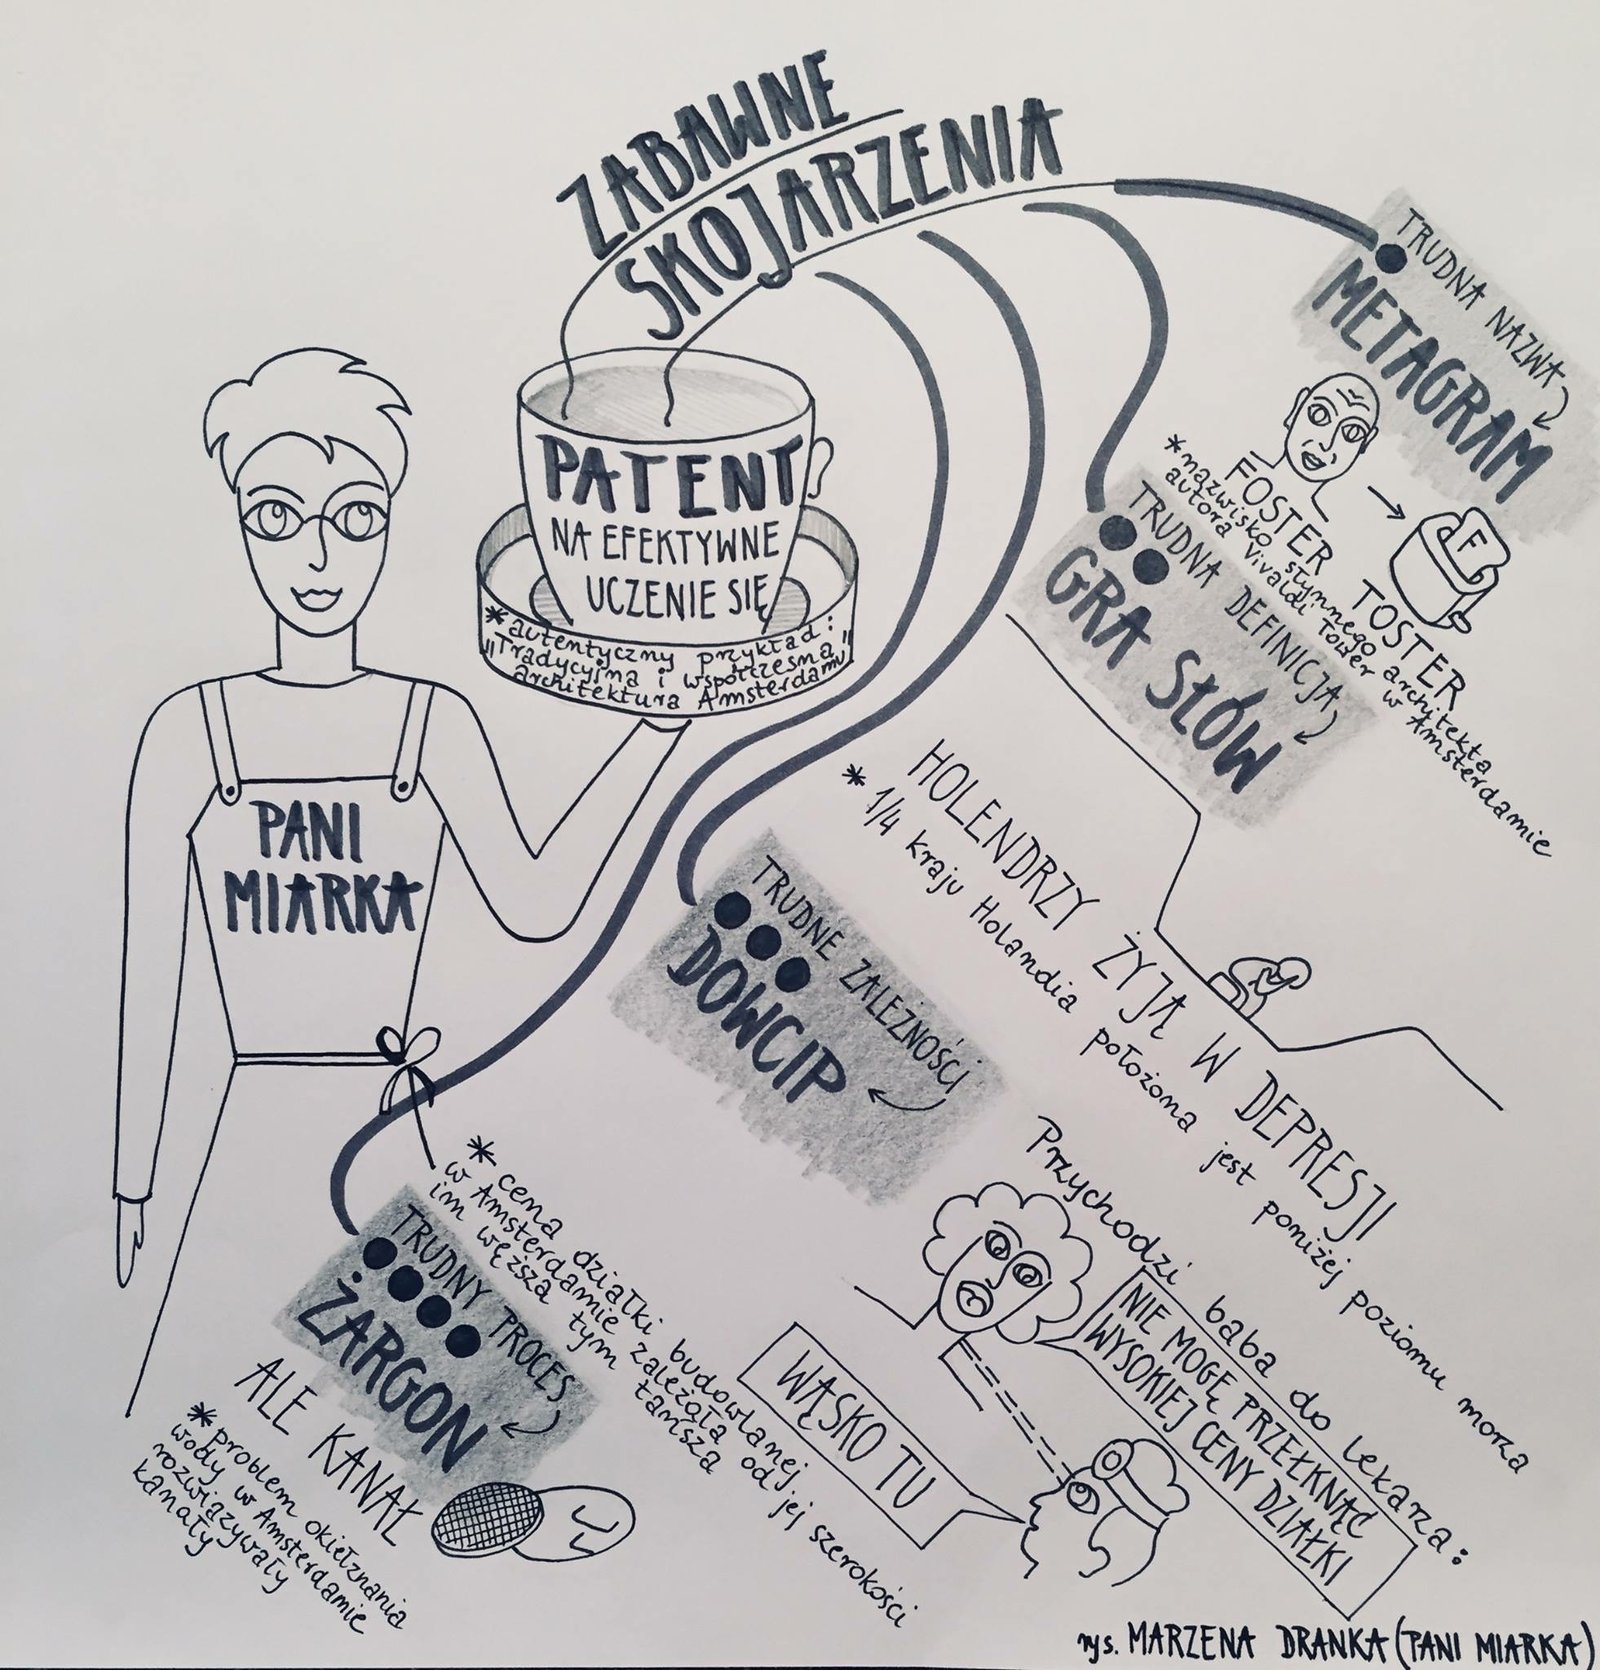 ZABAWNE
SKOJARZENIA
PATENT
NA EFEKTYWNE
UCZENIE SIĘ
* autentyczny przykład:
"Tradycyjna i współczesna
architektura Amsterdamu"
PANI
MIARKA
TRUDNA NAZWA
METAGRAM
FOSTER
TOSTER
F
* nazwisko słynnego architekta
autora Vivaldi Tower w Amsterdamie
TRUDNA DEFINICJA
GRA SŁÓW
HOLENDRZY ŻYJĄ W DEPRESJI
* 1/4 kraju Holandia położona jest poniżej poziomu morza
TRUDNE ZALEŻNOŚCI
DOWCIP
Przychodzi baba do lekarza:
NIE MOGĘ PRZEŁKNĄĆ
WYSOKIEJ CENY DZIAŁKI
WĄSKO TU
* cena działki budowlanej
w Amsterdamie zależała od jej szerokości
im węższa tym tańsza
TRUDNY PROCES
ŻARGON
ALE KANAŁ
* problem okiełznania
wody w Amsterdamie
rozwiązywały
kanały
rys. MARZENA DRANKA (PANI MIARKA)